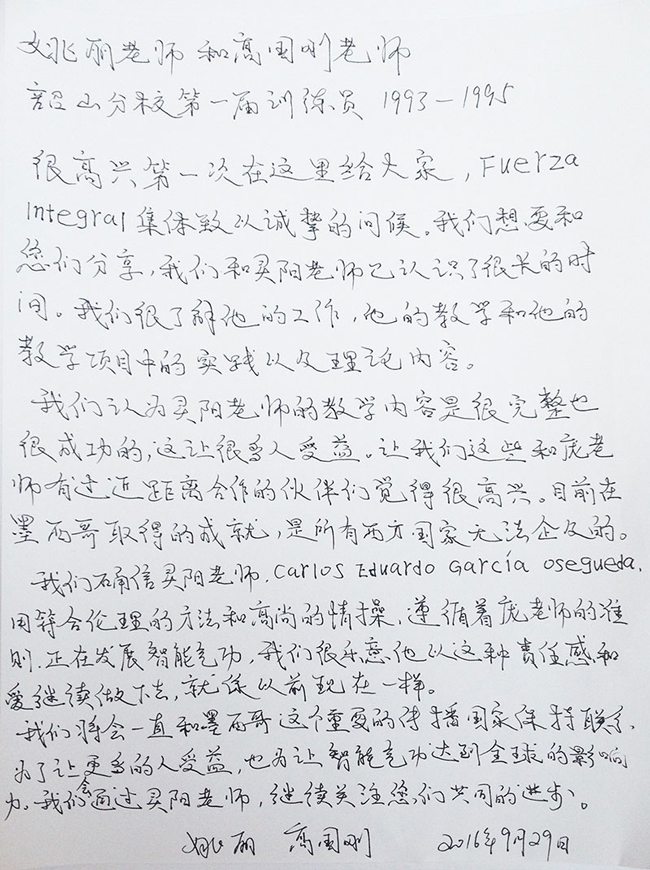 姚丽老师和高国刚老师
韶山分校第一届训练员 1993－1995
很高兴第一次在这里给大家，Fuerza
Integral 集体致以诚挚的问候。我们想要和
您们分享，我们和灵阳老师已认识了很长的时
间。我们很了解他的工作，他的教学和他的
教学项目中的实践以及理论内容。
我们认为灵阳老师的教学内容是很完整也
很成功的，这让很多人受益。让我们这些和庞老
师有过近距离合作的伙伴们觉得很高兴。目前在
墨西哥取得的成就，是所有西方国家无法企及的。
我们确信灵阳老师，Carlos Eduardo García Osegueda，
用符合伦理的方法和高尚的情操，遵循着庞老师的准
则，正在发展智能气功，我们很乐意他以这种责任感和
爱继续做下去，就像以前现在一样。
我们将会一直和墨西哥这个重要的传播国家保持联系，
为了让更多的人受益，也为让智能气功达到全球的影响
力。我们会通过灵阳老师，继续关注您们共同的进步。
姚丽 高国刚 2016年9月29日